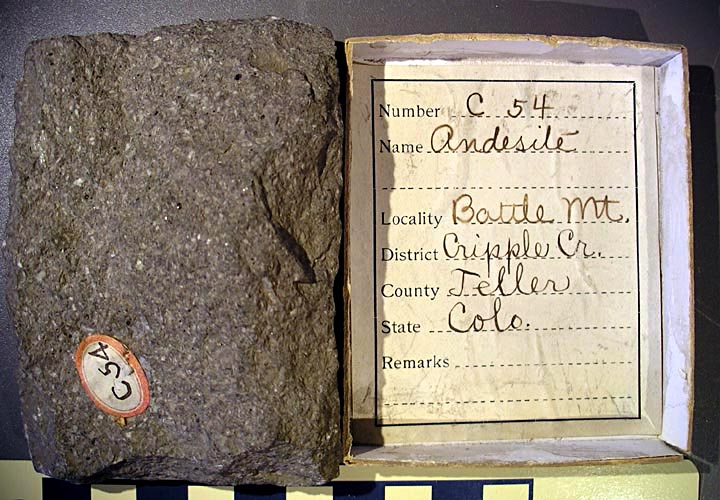 C54
Number C 54
Name Andesite
Locality Battle Mt.
District Cripple Cr.
County Teller
State Colo.
Remarks